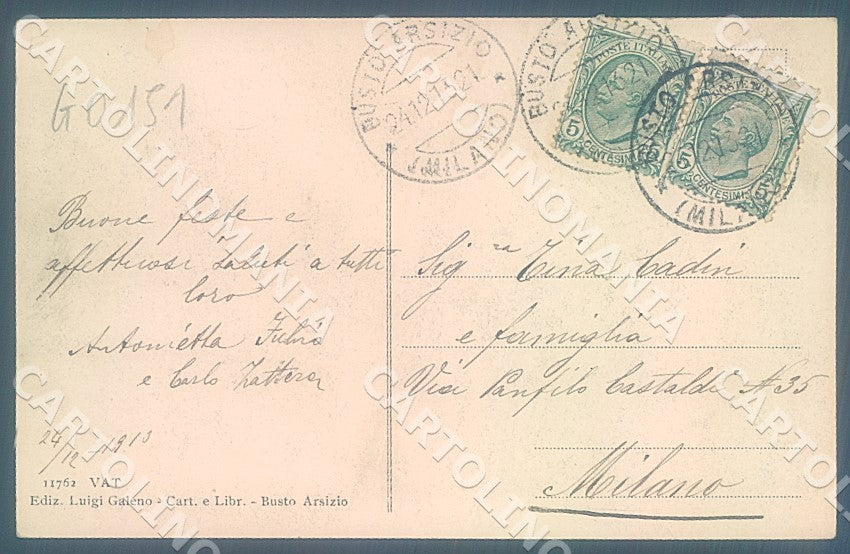 G0151
BUSTO ARSIZIO
24.12.13.21
(MILANO)
BUSTO ARSIZIO
POSTE ITALIANE
5 CENTESIMI 5
POSTE ITALIANE
5 CENTESIMI 5
(MILANO)
Buone feste e
affettuosi saluti a tutti
loro
Antonietta
e Carlo
24/12 1913
Sigra Tina Cadin
e famiglia
Via Panfilo Castaldi N 35
Milano
11762 VAT
Ediz. Luigi Galeno - Cart. e Libr. - Busto Arsizio
CARTOLINOMANIA